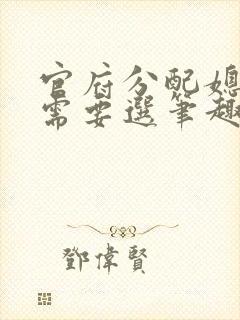 官府分配媳
需要選筆趣
鄧偉賢